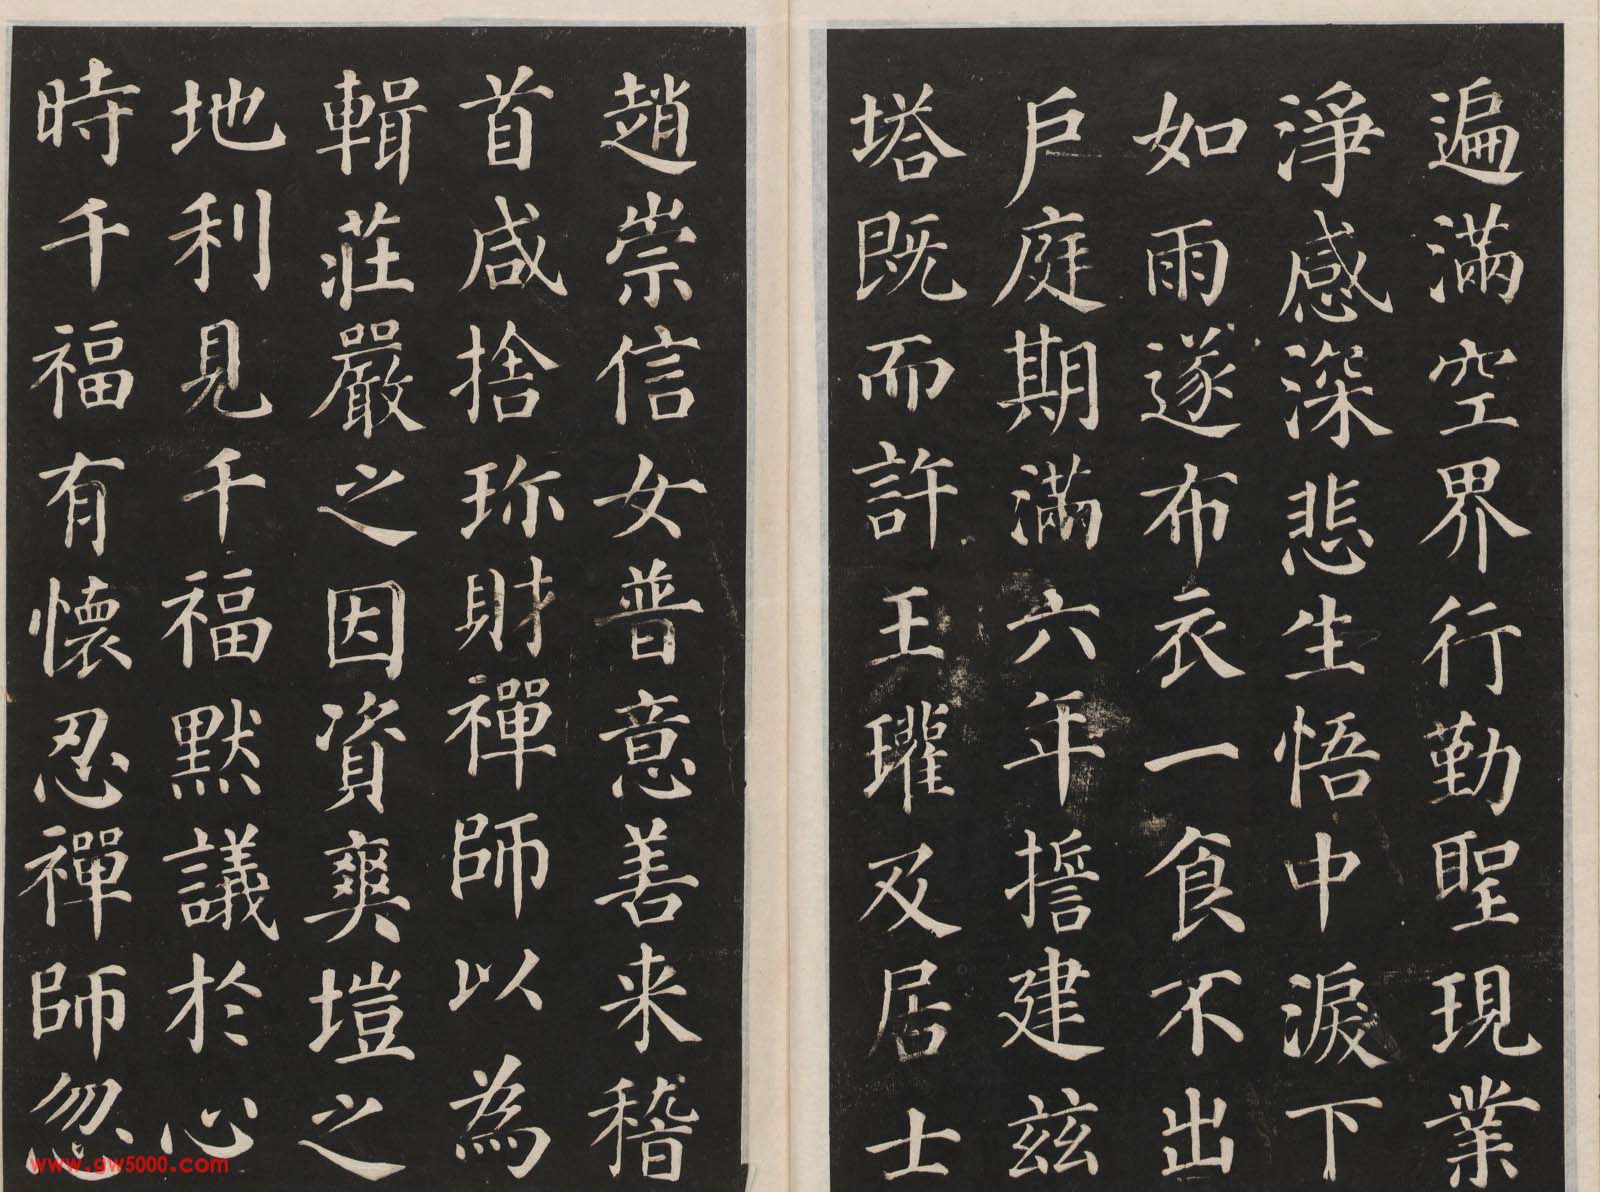 遍滿空界行勤聖現業
淨感深悲生悟中淚下
如雨遂布衣一食不出
戶庭期滿六年擔建茲
塔既而許王瓘及居士
趙崇信女普意善来稽
首咸捨珎財禪師以為
輯莊嚴之因資爽塏之
地利見千福默議於心
時千福有懷忍禪師忽
www.gw5000.com